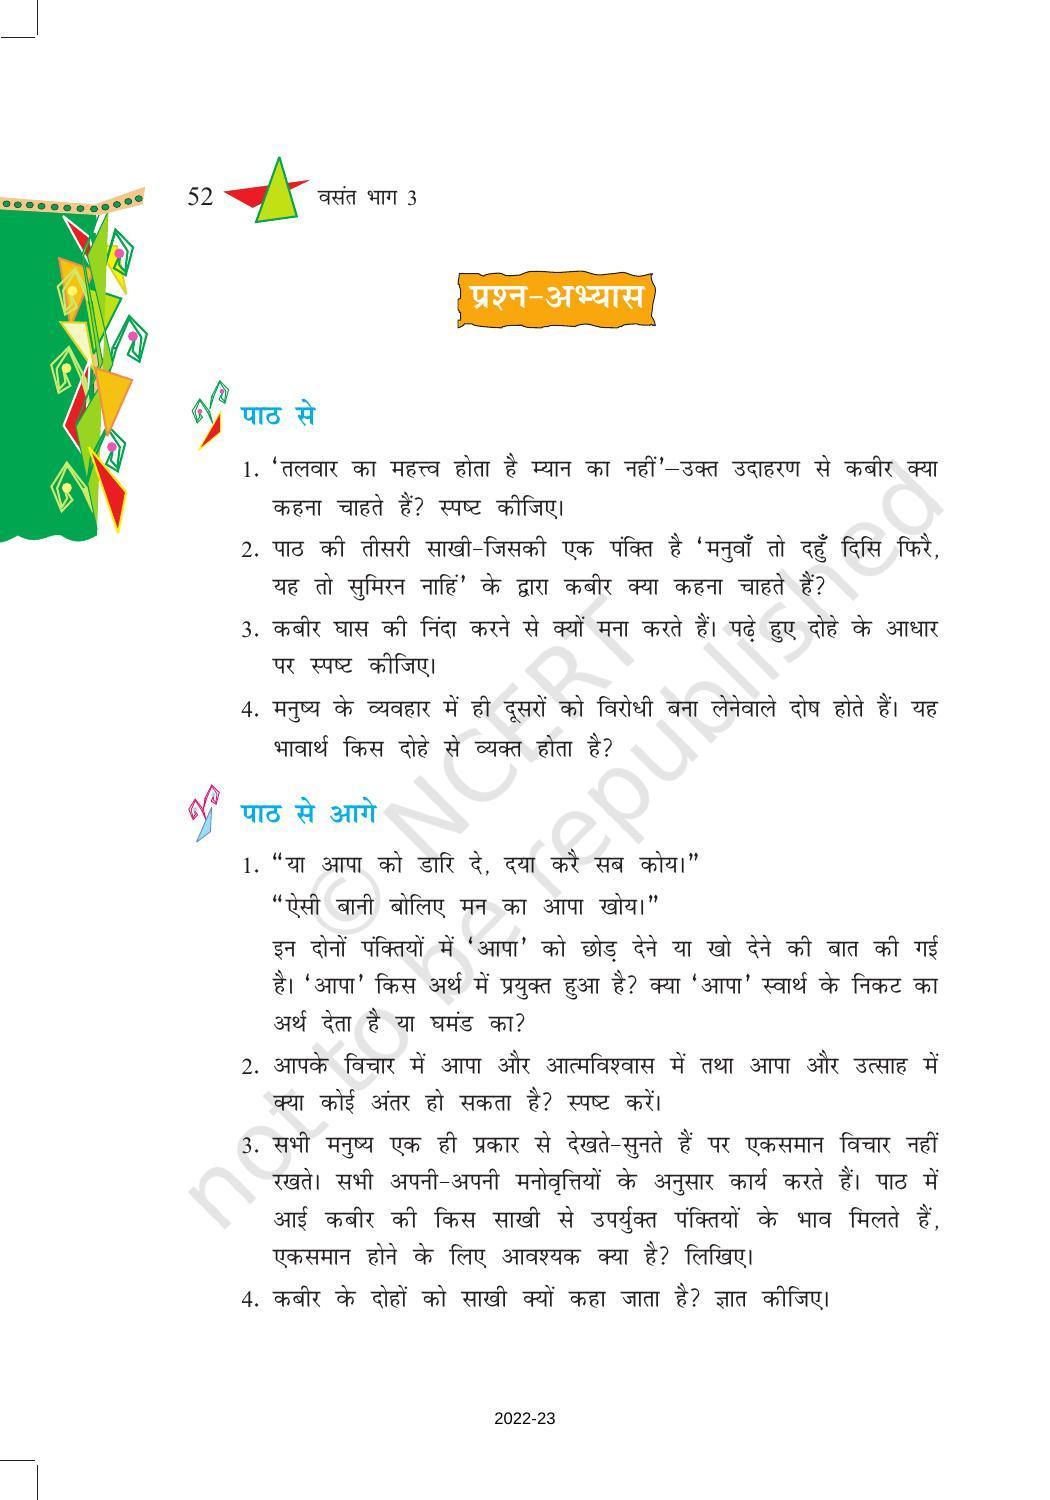 52
वसंत भाग 3
प्रश्न-अभ्यास
पाठ से
1. ‘तलवार का महत्त्व होता है म्यान का नहीं’–उक्त उदाहरण से कबीर क्या
कहना चाहते हैं? स्पष्ट कीजिए।
2. पाठ की तीसरी साखी-जिसकी एक पंक्ति है ‘मनुवाँ तो दहुँ दिसि फिरै,
यह तो सुमिरन नाहिं’ के द्वारा कबीर क्या कहना चाहते हैं?
3. कबीर घास की निंदा करने से क्यों मना करते हैं। पढ़े हुए दोहे के आधार
पर स्पष्ट कीजिए।
4. मनुष्य के व्यवहार में ही दूसरों को विरोधी बना लेनेवाले दोष होते हैं। यह
भावार्थ किस दोहे से व्यक्त होता है?
पाठ से आगे
1. “या आपा को डारि दे, दया करै सब कोय।”
“ऐसी बानी बोलिए मन का आपा खोय।”
इन दोनों पंक्तियों में ‘आपा’ को छोड़ देने या खो देने की बात की गई
है। ‘आपा’ किस अर्थ में प्रयुक्त हुआ है? क्या ‘आपा’ स्वार्थ के निकट का
अर्थ देता है या घमंड का?
2. आपके विचार में आपा और आत्मविश्वास में तथा आपा और उत्साह में
क्या कोई अंतर हो सकता है? स्पष्ट करें।
3. सभी मनुष्य एक ही प्रकार से देखते-सुनते हैं पर एकसमान विचार नहीं
रखते। सभी अपनी-अपनी मनोवृत्तियों के अनुसार कार्य करते हैं। पाठ में
आई कबीर की किस साखी से उपर्युक्त पंक्तियों के भाव मिलते हैं,
एकसमान होने के लिए आवश्यक क्या है? लिखिए।
4. कबीर के दोहों को साखी क्यों कहा जाता है? ज्ञात कीजिए।
© NCERT
not to be republished
2022-23